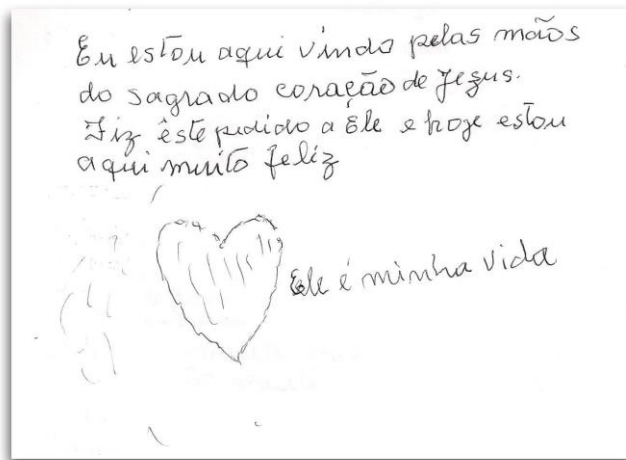 Eu estou aqui vindo pelas mãos
do sagrado coração de Jesus.
Fiz êste pedido a Ele e hoje estou
aqui muito feliz
Ele é minha vida